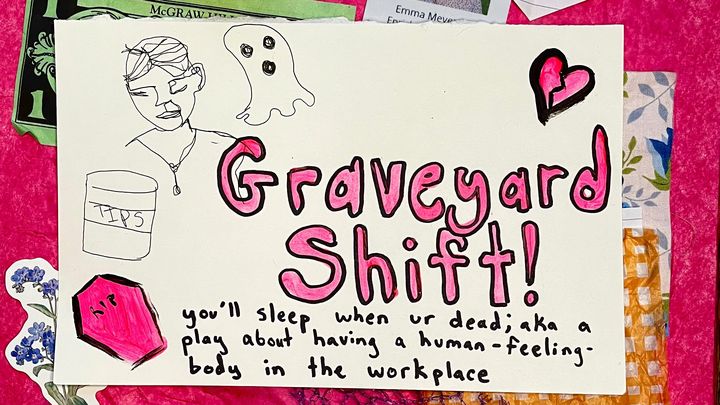 McGRAW-HILL
Emma Meye
1
1
TIPS
Graveyard
Shift!
rip
you'll sleep when ur dead; aka a
play about having a human-feeling-
body in the workplace